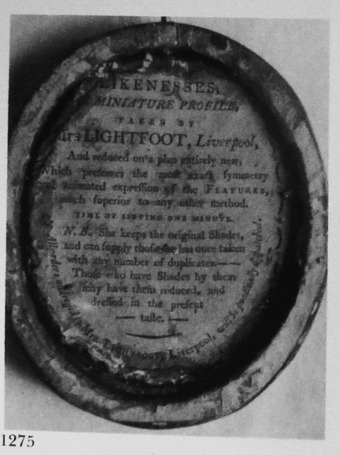 LIKENESSES,
MINIATURE PROFILE,
TAKEN BY
Mrs LIGHTFOOT, Liverpool,
And reduced on a plan entirely new,
Which preserves the most exact symmetry
and animated expression of the FEATURES,
much superior to any other method.
TIME OF SITTING ONE MINUTE.
N. B. She keeps the original Shades,
and can supply those she has once taken
with any number of duplicates.——
Those who have Shades by them
may have them reduced, and
dressed in the present
— taste. —
to Mrs LIGHTFOOT, Liverpool, will be punctually
1275